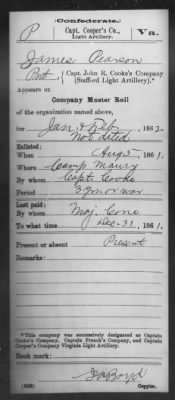 Confederate.
P Capt. Cooper's Co., Light Artillery. Va.
James Pearson
Pvt { Capt. John R. Cooke's Company (Stafford Light Artillery).*
Appears on
Company Muster Roll
of the organization named above,
for Jan & Feb, 1862
Not dated
Enlisted:
When Aug 5, 1861.
Where Camp Maury
By whom Capt. Cooke
Period 3 yrs or war
Last paid:
By whom Maj. Cone
To what time Dec. 31, 1861.
Present or absent Present
Remarks:
*This company was successively designated as Captain
Cooke's Company, Captain French's Company, and Captain
Cooper's Company Virginia Light Artillery.
Book mark:
Boyd
(642) Copyist.